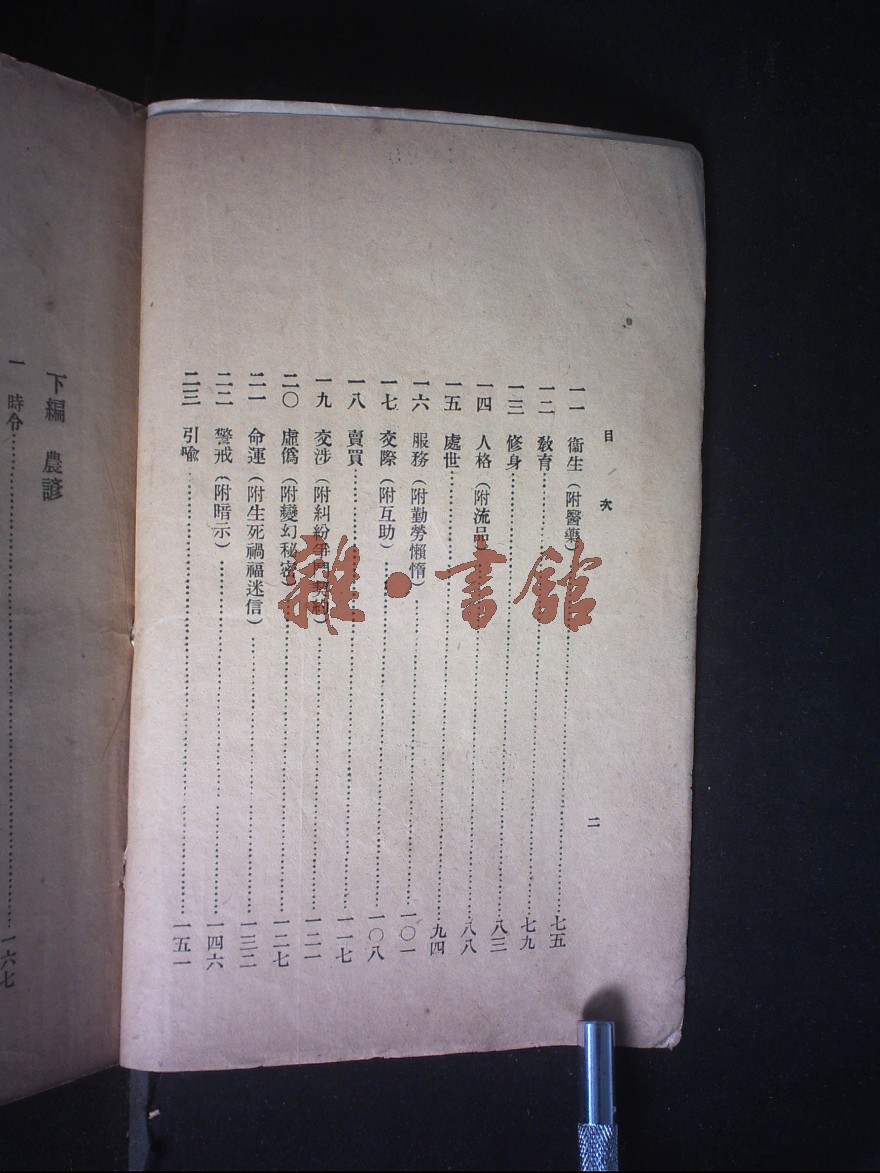 目次
二
一一 衞生(附醫藥)……七五
一二 敎育……七九
一三 修身……八三
一四 人格(附流品)……八八
一五 處世……九四
一六 服務(附勤勞懶惰)……一〇一
一七 交際(附互助)……一〇八
一八 賣買……一一七
一九 交涉(附糾紛爭鬥契約)……一二一
二〇 虛僞(附變幻秘密)……一二七
二一 命運(附生死禍福迷信)……一三二
二二 警戒(附暗示)……一四六
二三 引喩……一五一
下編 農諺
一 時令……一六七
雜·書館